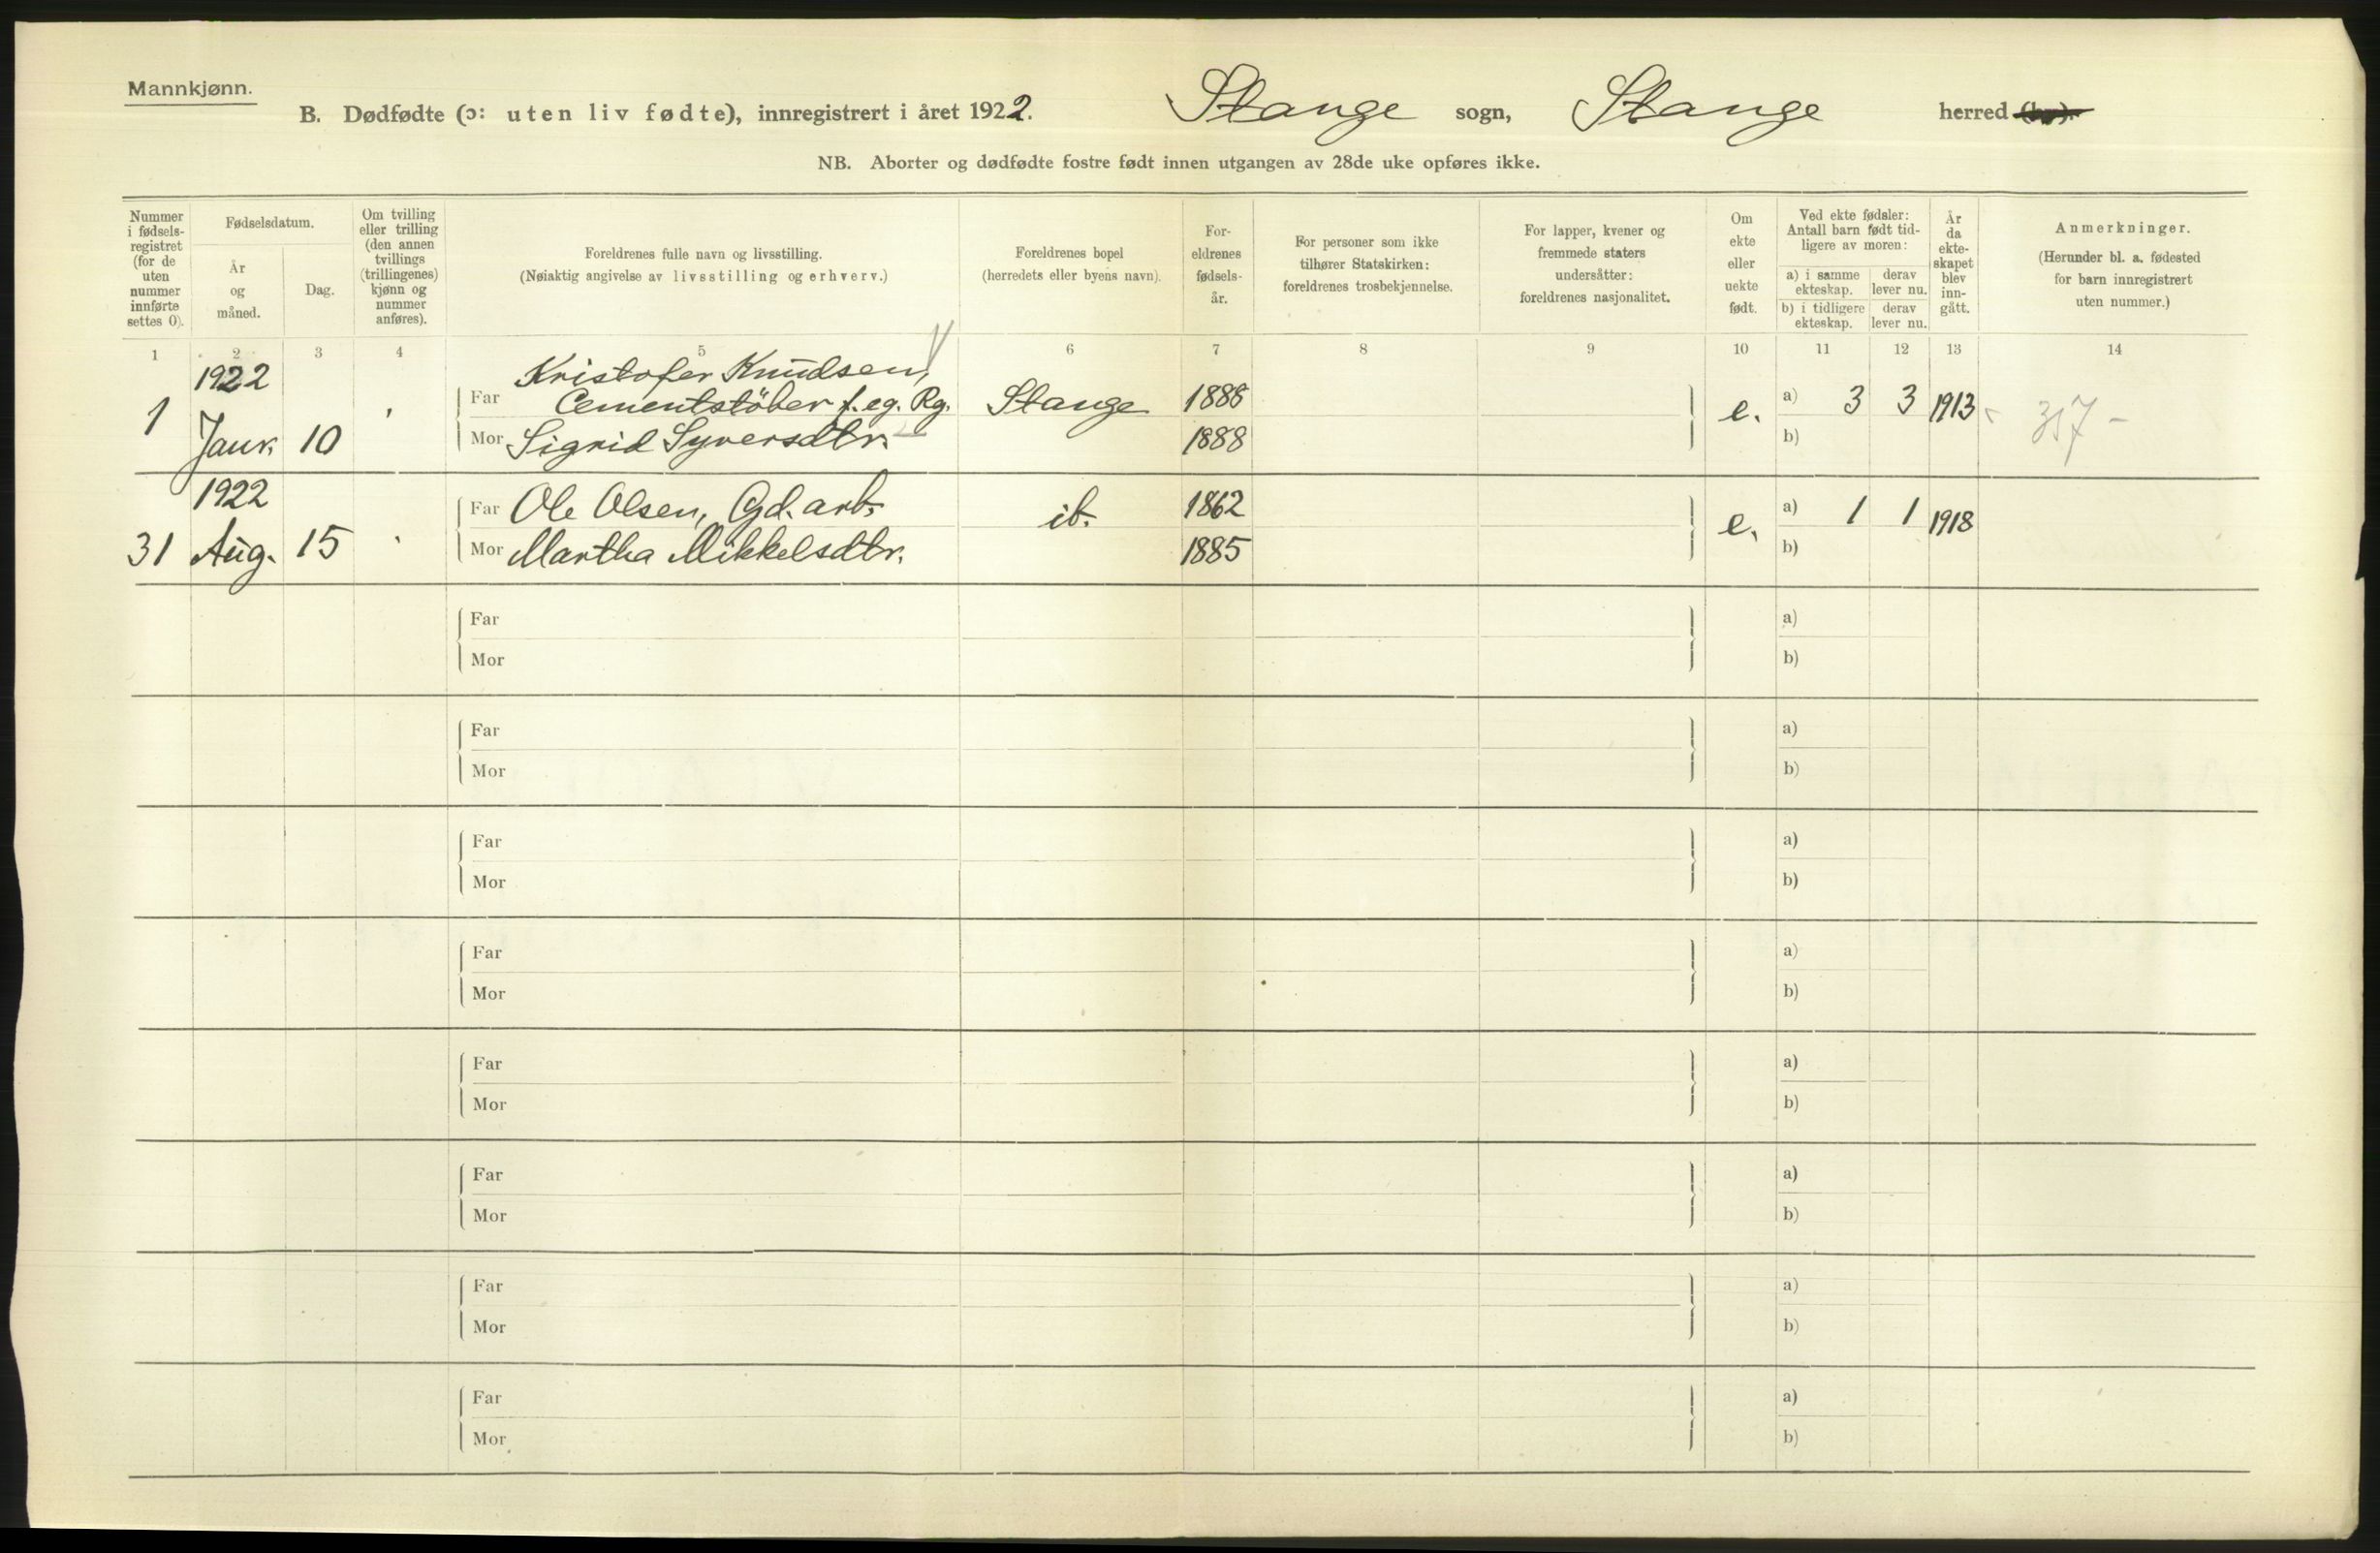 Mannkjønn.
B. Dødfødte (ɔ: uten liv fødte), innregistrert i året 1922. Stange sogn, Stange herred (by).
NB. Aborter og dødfødte fostre født innen utgangen av 28de uke opføres ikke.
Nummer i fødselsregistret (for de uten nummer innførte settes 0).
Fødselsdatum.
År og måned.
Dag.
Om tvilling eller trilling (den annen tvillings (trillingenes) kjønn og nummer anføres).
Foreldrenes fulle navn og livsstilling.
(Nøiaktig angivelse av livsstilling og erhverv.)
Foreldrenes bopel (herredets eller byens navn).
Foreldrenes fødselsår.
For personer som ikke tilhører Statskirken: foreldrenes trosbekjennelse.
For lapper, kvener og fremmede staters undersåtter: foreldrenes nasjonalitet.
Om ekte eller uekte født.
Ved ekte fødsler: Antall barn født tidligere av moren:
a) i samme ekteskap. derav lever nu.
b) i tidligere ekteskap. derav lever nu.
År da ekteskapet blev inngått.
Anmerkninger.
(Herunder bl. a. fødested for barn innregistrert uten nummer.)
1 2 3 4 5 6 7 8 9 10 11 12 13 14
1922 Kristofer Knudsen,
1 Far Cementstöber f. eg. Rg. Stange 1888 e. a) 3 3 1913 317 -
Janr. 10 Mor Sigrid Syversdtr. 1888 b)
1922 Far Ole Olsen, Gd. arb. ib. 1862 e. a) 1 1 1918
31 Aug. 15 Mor Martha Mikkelsdtr. 1885 b)
Far a)
Mor b)
Far a)
Mor b)
Far a)
Mor b)
Far a)
Mor b)
Far a)
Mor b)
Far a)
Mor b)
Far a)
Mor b)
Far a)
Mor b)